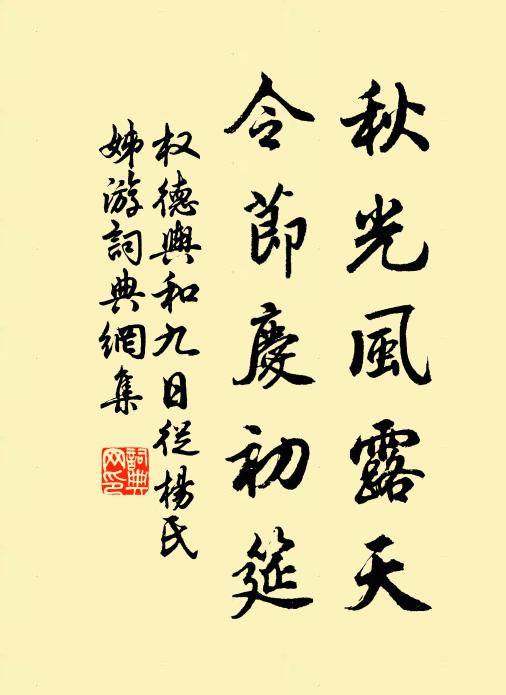 秋光風露天
令節慶初筵
权德輿和九日從楊氏
姊游詞典網集
詞典
网印